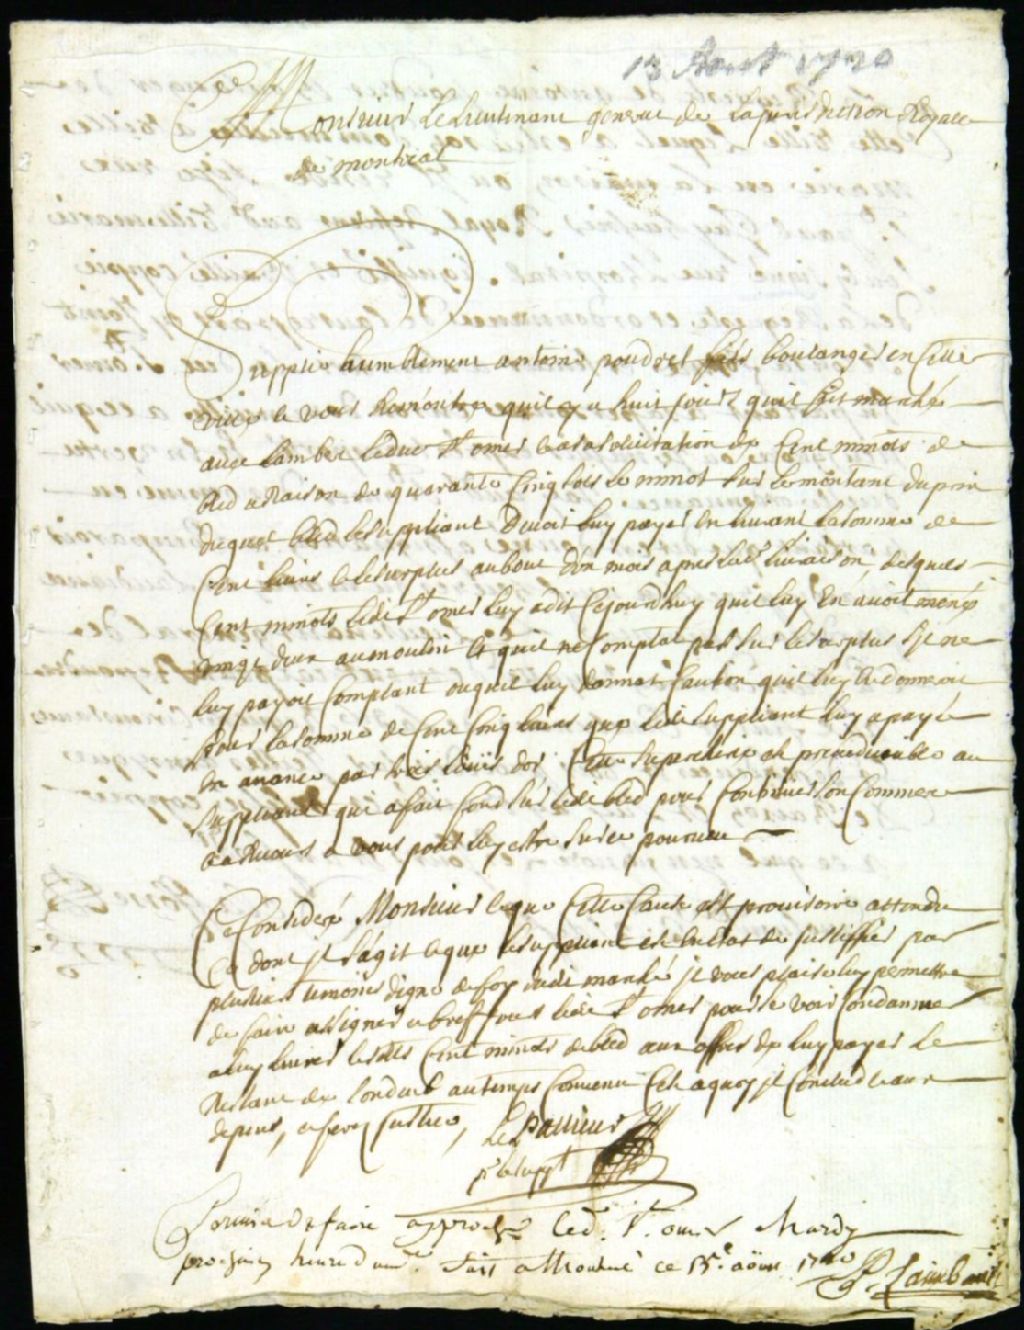 13 Aoust 1720
A Monsieur Le Lieutenant general de La Jurisdiction Royalle
de montreal
Supplie humblement antoine poudret fils boulanger en cette
ville et vous Remontre quil y a huit jours quil fit marché
avec Lambert leduc St omer de cent minots de
bled a Raison de quarante cinq sols le minot sur le montant du prix
duquel bled le suppliant devoit luy payer en livrant la somme de
Cent livres et le surplus au bout d'un mois apres la livraison desquels
Cent minots ledit St omer luy a dit cejourdhuy quil luy en avoit mené
vingt deux au moulin et quil ne comptat pas sur le surplus sy je ne
luy payois comptant ou quil luy donnat caution quil luy donneroit
pour la somme de cent cinq livres que ledit suppliant luy a payé
en avance par trois Louis dor Cette est prejudiciable au
suppliant qui a fait fond sur ledit bled pour continuer son commerce
a Recours a vous pour luy estre sur ce pourveu
Ce Consideré Monsieur et que cette cause est provisoire attendu
ce dont il s'agit et que le suppliant est en Estat de justiffier par
plusieurs temoins digne de foy dudit marché il vous plaise luy permettre
de faire assigner a bref jour ledit St omer pour se voir condamner
a luy livrer lesdits cent minots de bled aux offres de luy payer le
Restant de au temps convenu Et a quoy il conclud et aux
depens, et ferez justice, Le Pallieur
pr le supt
Permis de faire approcher led. St. omer Mardy
prochain heure d'aud. Fait a Montreal ce 13e. aoust 1720
F. Raimbault